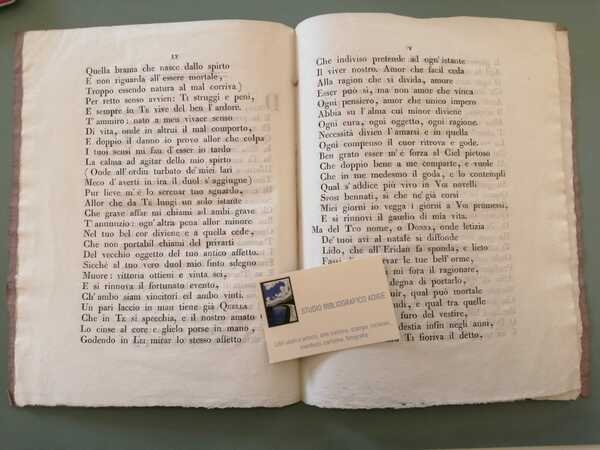 IV
Quella brama che nasce dallo spirto
E non riguarda all'essere mortale,
Troppo essendo natura al mal corriva)
Per retto senso avvien: TI struggi e peni,
E sempre in TE vive del ben l'ardore.
T'ammiro: nato a meu vivace senso
Di vita, onde in altrui il mal comporto,
E doppio il danno io provo allor che colpa
I tuoi sensi mi fau d'esser io tardo
La calma ad agitar dello mio spirto
(Onde all'ordin turbato de' miei lari
Meco d'averti in ira il duol s'aggiugne)
Pur lieve m'è lo serenar tuo sguardo,
Allor che da TE lungi un solo istante
Che grave affar mi chiami ad ambi grave
T'annunzio: ogn'altra pena allor minore
Nel tuo bel cor diviene e a quella cede,
Che non portabil chiami del privarti
Del vecchio oggetto del tuo antico affetto.
Sicchè al tuo vero duol mio finto sdegno
Muore: vittoria ottieni e vinta sei,
E si rinnova il fortunato evento,
Ch'ambo siam vincitori ed ambo vinti.
Un pari laccio in man tiene già QUELLA
Che in TE si specchia, e il nostro amato
Lo cinse al core e glielo porse in mano,
Godendo in LEI mirar lo stesso affetto
V
Che indiviso pretende ad ogn'istante
Il viver nostro. Amor che facil ceda
Alla ragion che vi divida, amore
Esser può sì, ma non amor che vinca
Ogni pensiero, amor che unico impero
Abbia su l'alma cui minor diviene
Ogni cura, ogni oggetto, ogni ragione.
Necessità divien l'amarsi e in quella
Ogni compenso il cuor ritrova e gode.
Ben grato esser m'è forza al Ciel pietoso
Che doppio bene a me comparte, e vuole
Che in me medesmo il goda, e lo contempli
Qual s'addice più vivo in VOI novelli
SPOSI bennati, sì che ne' già corsi
Miei giorni io vegga i giorni a VOI promessi,
E si rinnovi il gaudio di mia vita.
Ma del TUO nome, o DONNA, onde letizia
De' tuoi avi al natal e si diffonde
Lido, che all'Eridan fa sponda, e lieto
le tue bell'orme,
mi fora il ragionare,
degna di portarlo,
quai può mortale
e qual tra quelli
furo del vestire,
infin negli anni,
ti fioriva il detto,
STUDIO BIBLIOGRAFICO ADIGE